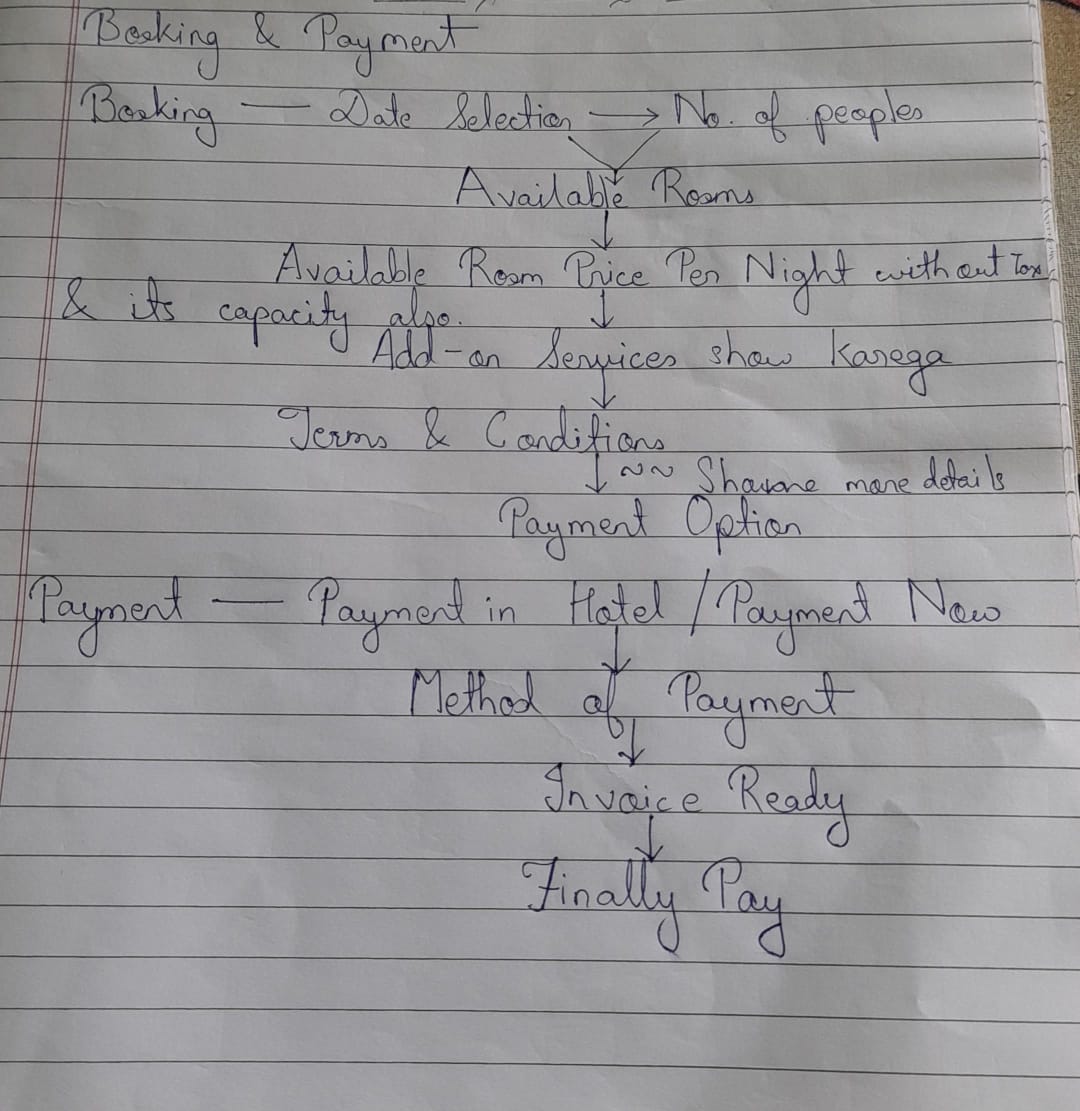 Booking & Payment
Booking — Date Selection → No. of peoples
Available Rooms
Available Room Price Per Night without Tax
& its capacity also.
Add-on Services show Karega
Terms & Conditions
~~ more details
Payment Option
Payment — Payment in Hotel / Payment Now
Method of Payment
Invoice Ready
Finally Pay